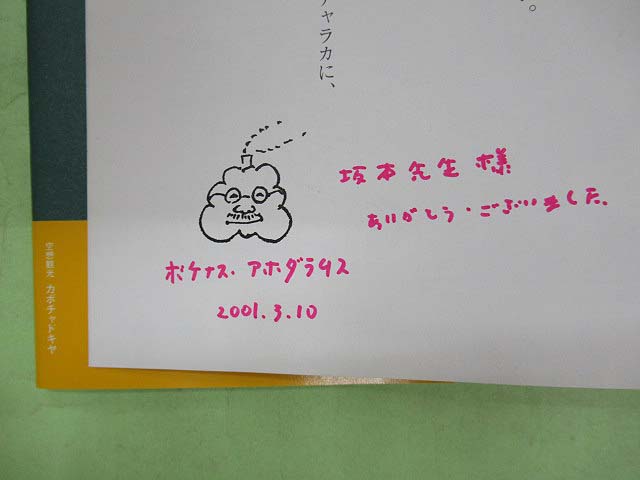 る。
チャラカに、
坂本先生様
ありがとう・ございました。
ボケナス・アホダラ913
2001.3.10
空想観光 カボチャドキヤ